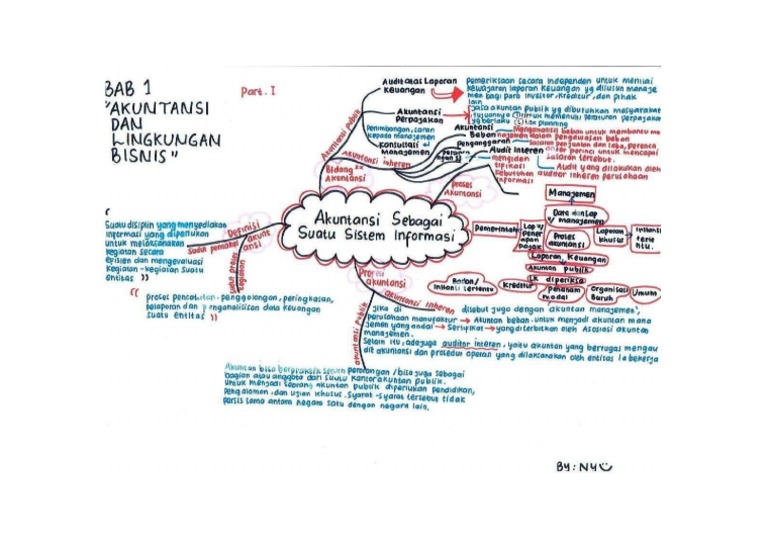 BAB 1
"AKUNTANSI
DAN
LINGKUNGAN
BISNIS"
Part. I
Audit atas Laporan
Keuangan
Pemeriksaan secara independen untuk menilai
kewajaran laporan keuangan yg disusun manaje
men bagi para investor, kreditur, dan pihak
lain
Akuntansi
Perpajakan
Jasa akuntan publik yg dibutuhkan masyarakat
tujuannya
memenuhi peraturan perpajakan
yg berlaku
tax planning
Akuntansi Publik
Penimbangan, saran
kepada manajemen
Konsultasi
Manajemen
Akuntansi Interen
Akuntansi
Beban
Mengumpulkan beban untuk membantu ma
najemen dalam pengawasan beban
Penganggaran
Sasaran penjualan dan laba, perenca
perinci untuk mencapai
sasaran tersebut.
Audit Interen
Audit yang dilakukan oleh
auditor interen perusahaan
mengiden
tifikasi
Kebutuhan
informasi
Bidang"
Akuntansi
Proses
Akuntansi
Akuntansi Sebagai
Suatu Sistem Informasi
Definisi
akunt
ansi
Sudut pemakai
Sudut proses
kegiatan
Suatu disiplin yang menyediakan
informasi yang diperlukan
untuk melaksanakan
kegiatan secara
efisien dan mengevaluasi
kegiatan-kegiatan suatu
entitas ))
(( proses pencatatan, penggolongan, peringkasan,
pelaporan dan penganalisisan data keuangan
suatu entitas ))
Manajemen
Data dan Lap
manajemen
Pemerintah
Lap
pener
apan
Pajak
Proses
akuntansi
Laporan
khusus
Instansi
terte
ntu.
Laporan Keuangan
Akuntan publik
LK diperiksa
Badan/
Instansi tertentu
Kreditur
Penanam
modal
Organisasi
Buruh
Umum
akuntansi
akuntansi interen
akuntansi publik
jika di
perusahaan manufaktur → Akuntan beban. untuk menjadi akuntan mana
disebut juga dengan akuntan manajemen",
jemen yang andal → Sertifikat → yang diterbitkan oleh Asosiasi akuntan
manajemen.
Selain itu, ada juga auditor interen, yaitu akuntan yang bertugas mengau
dit akuntansi dan prosedur operasi yang dilaksanakan oleh entitas ia bekerja
Akuntan bisa berpraktik sendiri perorangan/bisa juga sebagai
bagian atau anggota dari suatu kantor akuntan publik.
Untuk menjadi seorang akuntan publik diperlukan pendidikan,
pengalaman, dan ujian khusus. Syarat-syarat tersebut tidak
persis sama antara negara satu dengan negara lain.
BY: NY